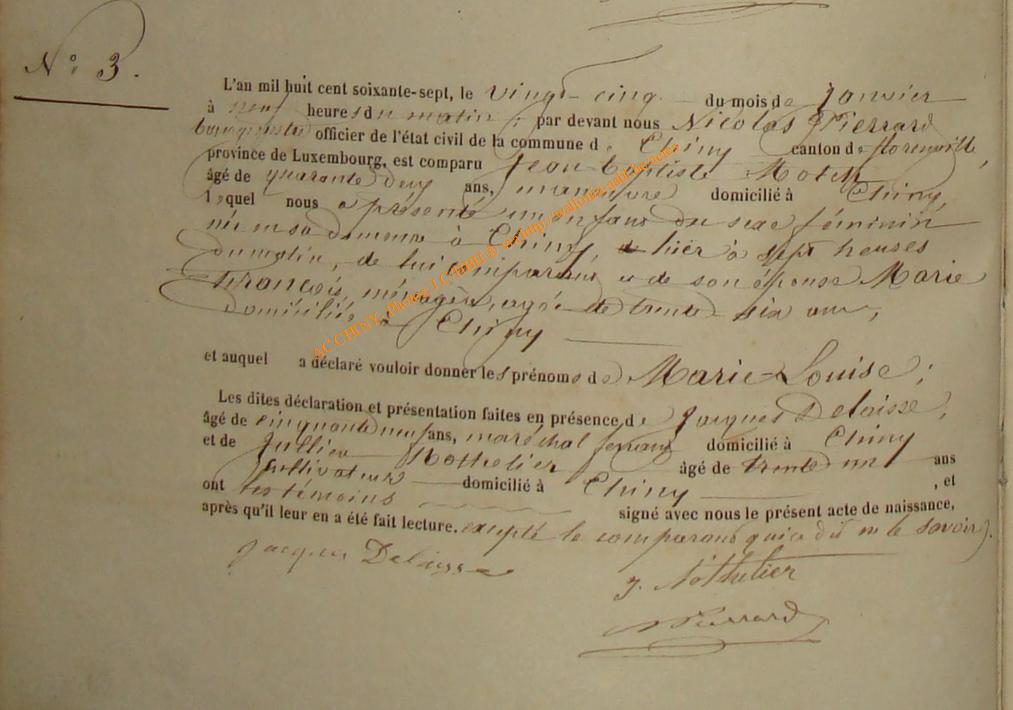 N° 3.
L'an mil huit cent soixante-sept, le vingt-cinq du mois de Janvier
à neuf heures du matin, par devant nous Nicolas Pierrard
bourgmestre officier de l'état civil de la commune de Chiny canton de florenville,
province de Luxembourg, est comparu Jean-Baptiste
âgé de quarante deux ans, manœuvre domicilié à Chiny,
lequel nous a présenté un enfant du sexe féminin
né en sa demeure à Chiny, hier à sept heures
du matin, de lui comparant et de son épouse Marie
François, ménagère, agée de trente six ans,
domiciliée à Chiny
et auquel a déclaré vouloir donner les prénoms de Marie-Louise;
Les dites déclaration et présentation faites en présence de Jacques Delaisse,
âgé de cinquante neuf ans, maréchal ferrant domicilié à Chiny
et de Jullien Nothelier âgé de trente un ans
Cultivateurs domicilié à Chiny, et
ont les témoins signé avec nous le présent acte de naissance,
après qu'il leur en a été fait lecture. excepté le comparant qui a dit ne le savoir.
Jacques Delaisse
J. Nothelier
N Pierrard